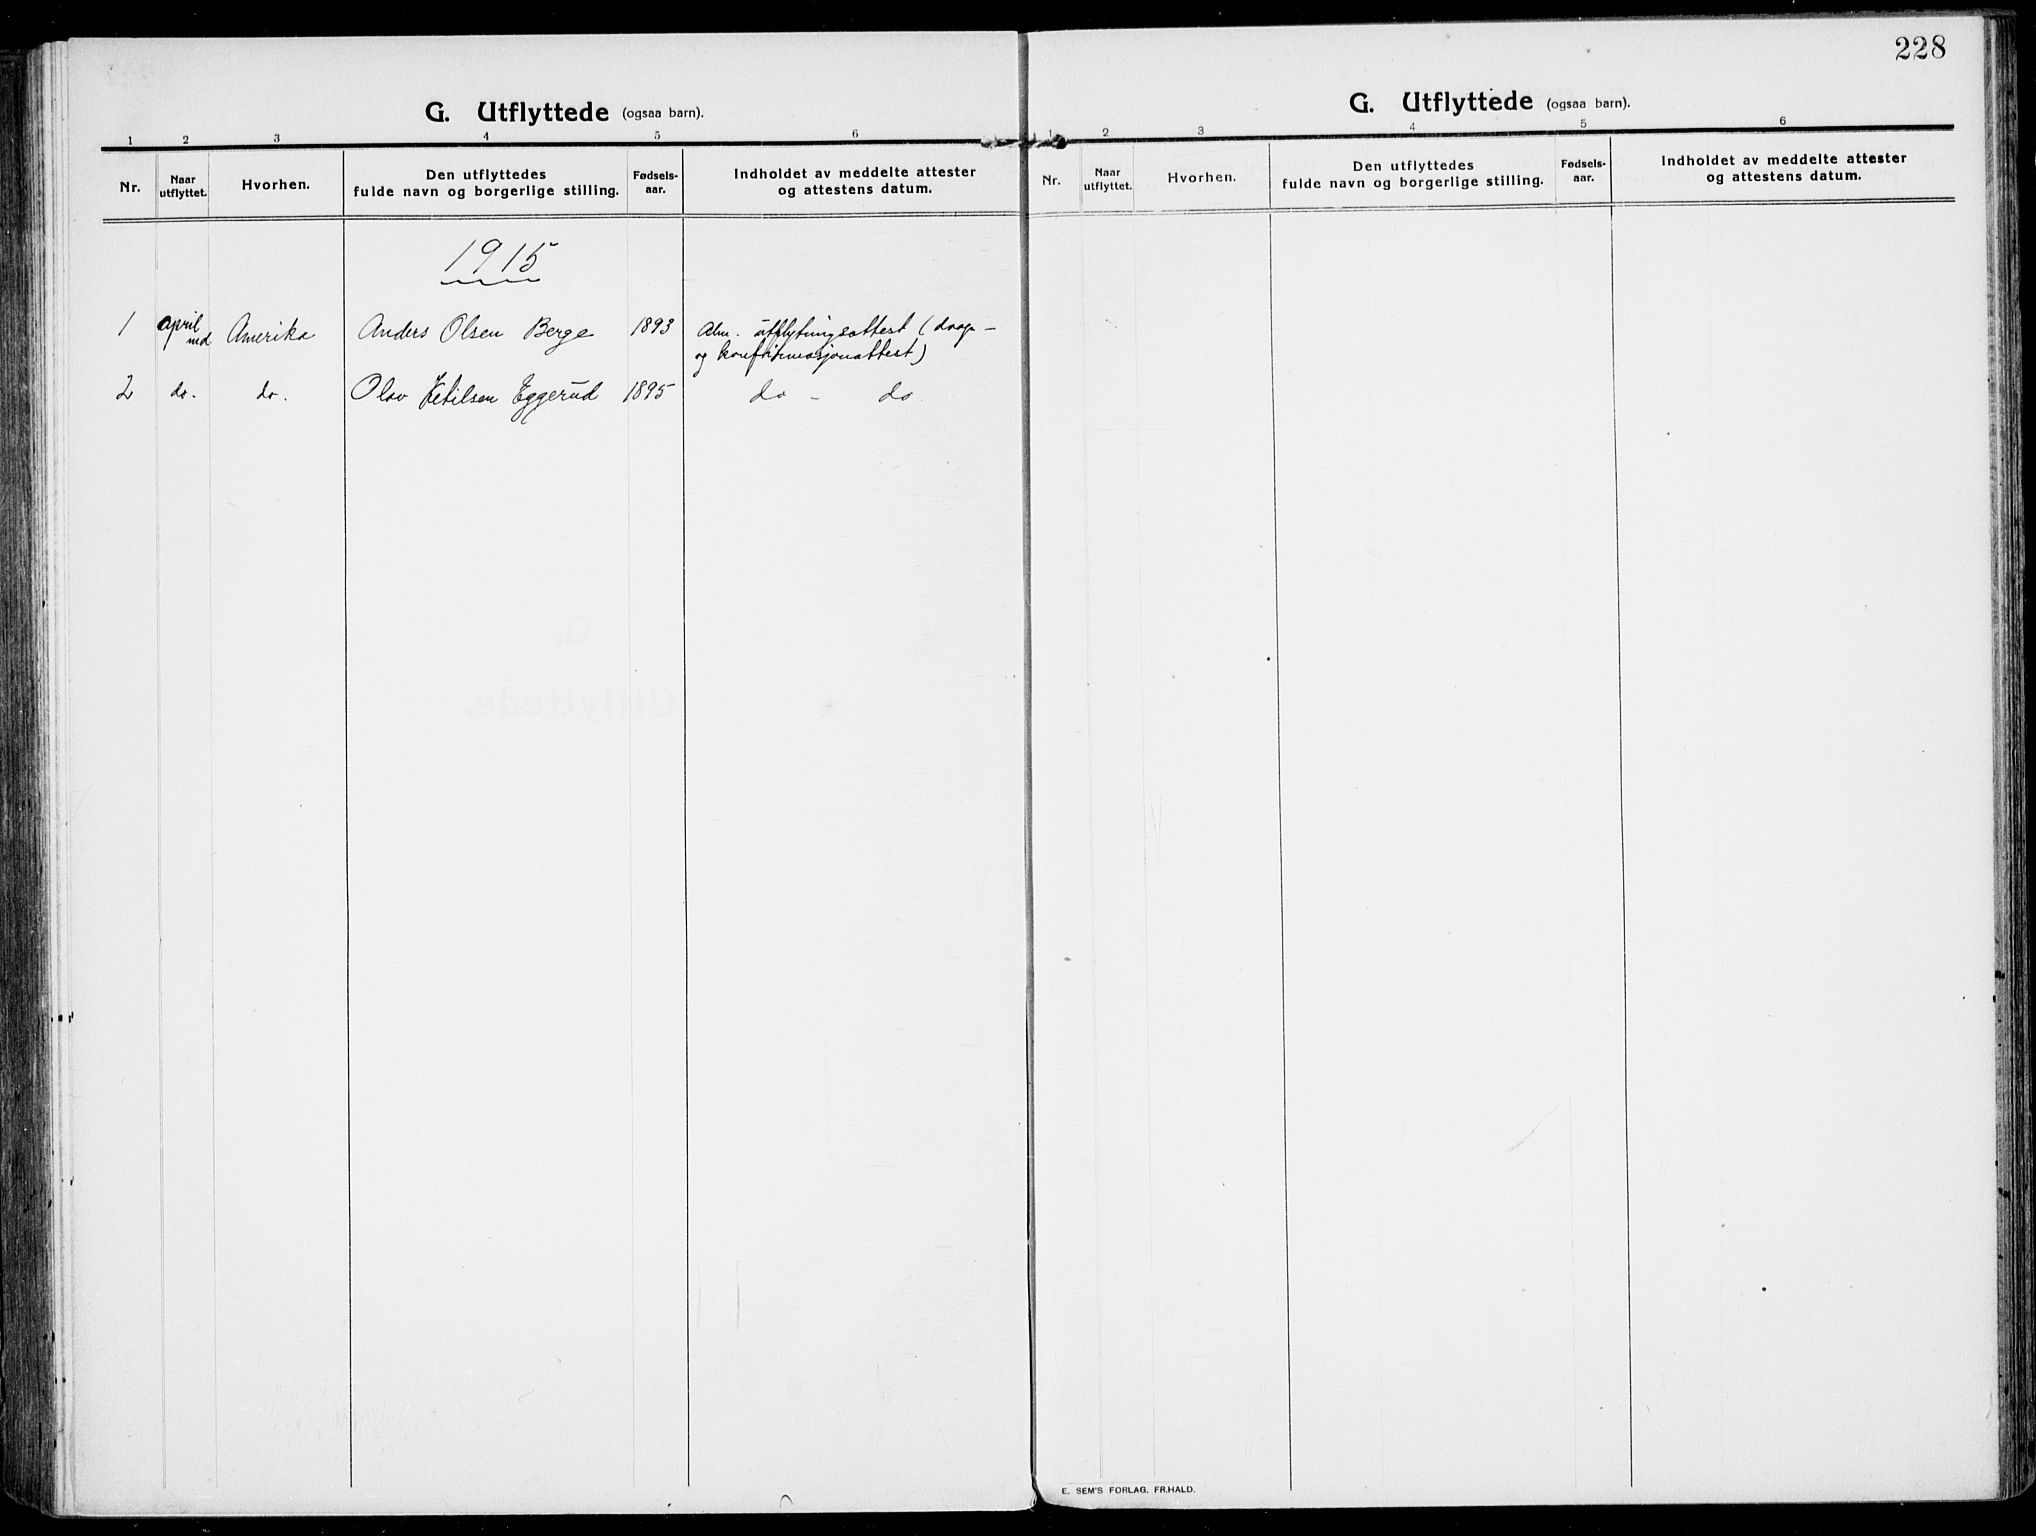 228
G. Utflyttede (ogsaa barn).
1 2 3 4 5 6
Nr. Naar utflyttet. Hvorhen. Den utflyttedes fulde navn og borgerlige stilling. Fødselsaar. Indholdet av meddelte attester og attestens datum.
1915
1 april md Amerika Anders Olsen Berge 1893 Alm. utflytningsattest (daap-
og konfirmasjonattest)
2 do. do. Olav Ketilsen Eggerud 1895 do - do.
G. Utflyttede (ogsaa barn).
1 2 3 4 5 6
Nr. Naar utflyttet. Hvorhen. Den utflyttedes fulde navn og borgerlige stilling. Fødselsaar. Indholdet av meddelte attester og attestens datum.
E. SEM'S FORLAG, FR.HALD.